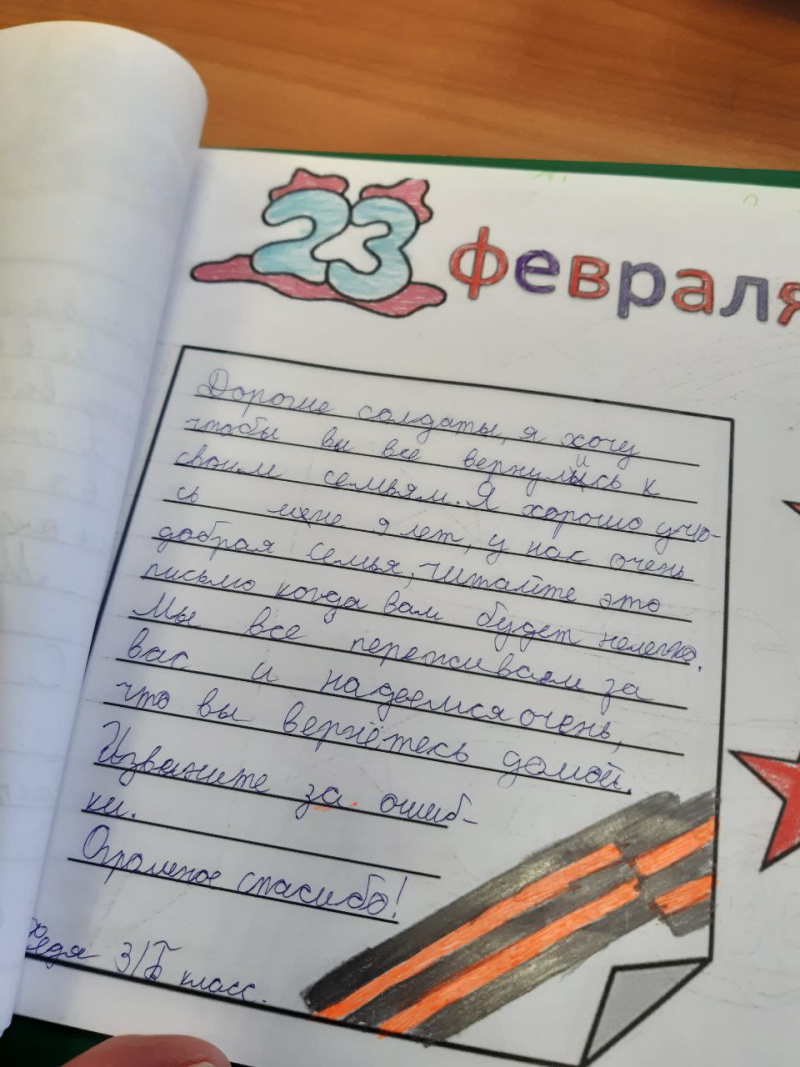 23 февраля
Дорогие солдаты, я хочу
чтобы вы все вернулись к
своим семьям. Я хорошо учю-
сь мене 9 лет, у нас очень
добрая семья, читайте это
письмо когда вам будет нелегко.
Мы все переживаем за
вас и надеемся очень,
что вы вернётесь домой.
Извените за ошиб-
ки.
Огромное спасибо!
Федя 3/Б класс.